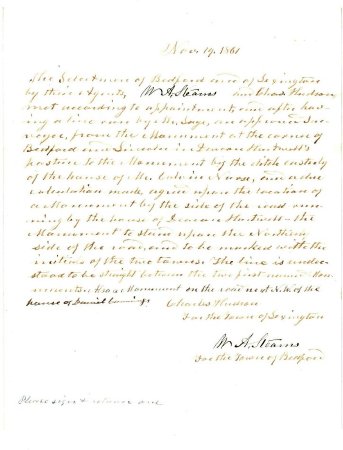 Nov. 19. 1861
The Selectmen of Bedford and of Lexington
by their Agents, W. A. Stearns and Charles Hudson
met according to appointment and after hav-
ing a line run by Mr. Sage, an approved Sur-
veyor, from the Monument at the corner of
Bedford and Lincoln in pasture to the Monument by the ditch easterly
of the house of Mr. and a due
calculation made agree upon the location of
a Monument by the side of the road run-
ning by the house of the
Monument to stand upon the Northerly
side of the road, and to be marked with the
initials of the two towns. The line is under-
stood to be straight between the two first named Mon-
uments. Monument on the road next N.W. of the
house of Daniel
Charles Hudson
For the Town of Lexington
W. A. Stearns
For the Town of Bedford
Please sign & return one